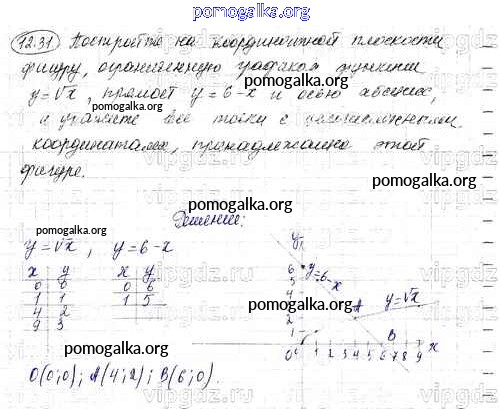 pomogalka.org
12.31 Постройте на координатной плоскости
фигуру, ограниченную графиком функции
y=√x, прямой y=6-x и осью абсцисс,
и укажите все точки с целочисленными
координатами, принадлежащие этой
фигуре.
pomogalka.org
Решение:
y=√x, y=6-x
x y
0 0
1 1
4 2
9 3
x y
0 6
1 5
y
6
5
4
2
1
0 1 2 3 4 5 6 7 8 9 x
y=6-x
A
y=√x
B
O(0;0); A(4;2); B(6;0).
pomogalka.org
vipgdz.ru